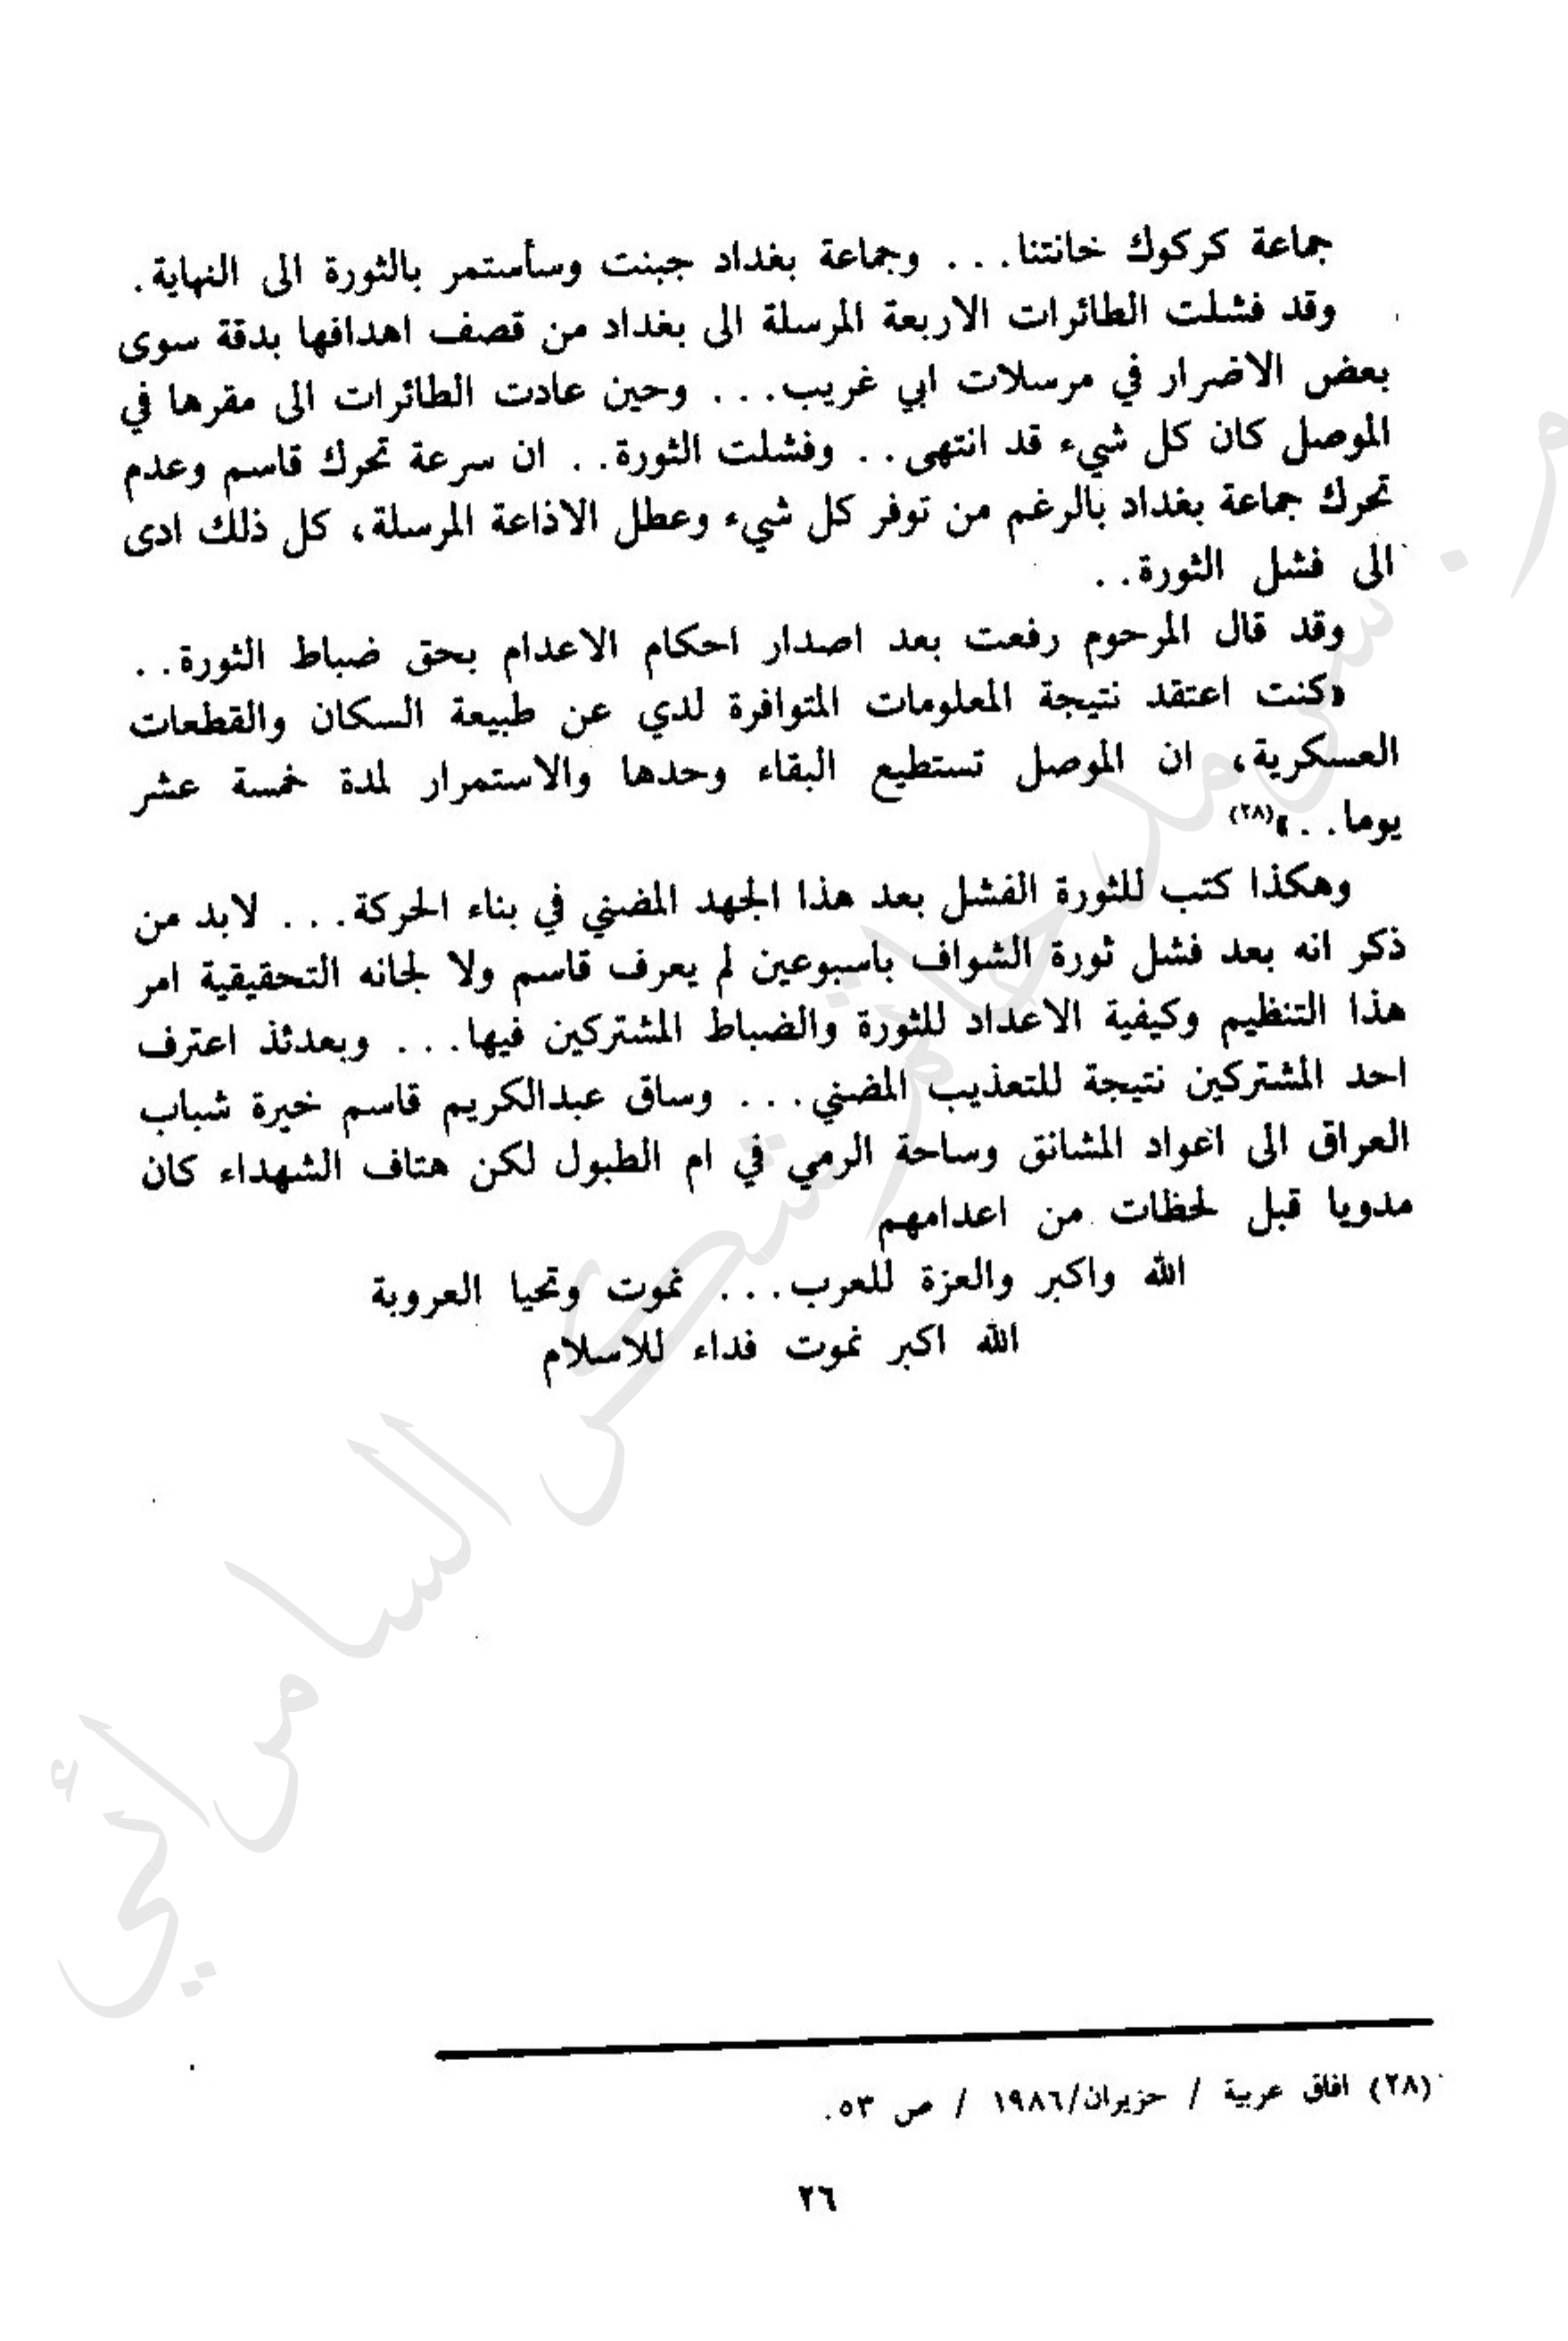 جماعة كركوك خانتنا... وجماعة بغداد جبنت وسأستمر بالثورة الى النهاية.
وقد فشلت الطائرات الاربعة المرسلة الى بغداد من قصف اهدافها بدقة سوى
بعض الاضرار في مرسلات ابي غريب... وحين عادت الطائرات الى مقرها في
الموصل كان كل شيء قد انتهى.. وفشلت الثورة.. ان سرعة تحرك قاسم وعدم
تحرك جماعة بغداد بالرغم من توفر كل شيء وعطل الاذاعة المرسلة، كل ذلك ادى
الى فشل الثورة..
وقد قال المرحوم رفعت بعد اصدار احكام الاعدام بحق ضباط الثورة..
«كنت اعتقد نتيجة المعلومات المتوافرة لدي عن طبيعة السكان والقطعات
العسكرية، ان الموصل تستطيع البقاء وحدها والاستمرار لمدة خمسة عشر
يوما..»(٢٨)
وهكذا كتب للثورة الفشل بعد هذا الجهد المضني في بناء الحركة... لابد من
ذكر انه بعد فشل ثورة الشواف باسبوعين لم يعرف قاسم ولا لجانه التحقيقية امر
هذا التنظيم وكيفية الاعداد للثورة والضباط المشتركين فيها... وبعدئذ اعترف
احد المشتركين نتيجة للتعذيب المضني... وساق عبدالكريم قاسم خيرة شباب
العراق الى اعواد المشانق وساحة الرمي في ام الطبول لكن هتاف الشهداء كان
مدويا قبل لحظات من اعدامهم
الله واكبر والعزة للعرب... نموت وتحيا العروبة
الله اكبر نموت فداء للاسلام
(٢٨) افاق عربية / حزيران/١٩٨٦ / ص ٥٣.
٢٦